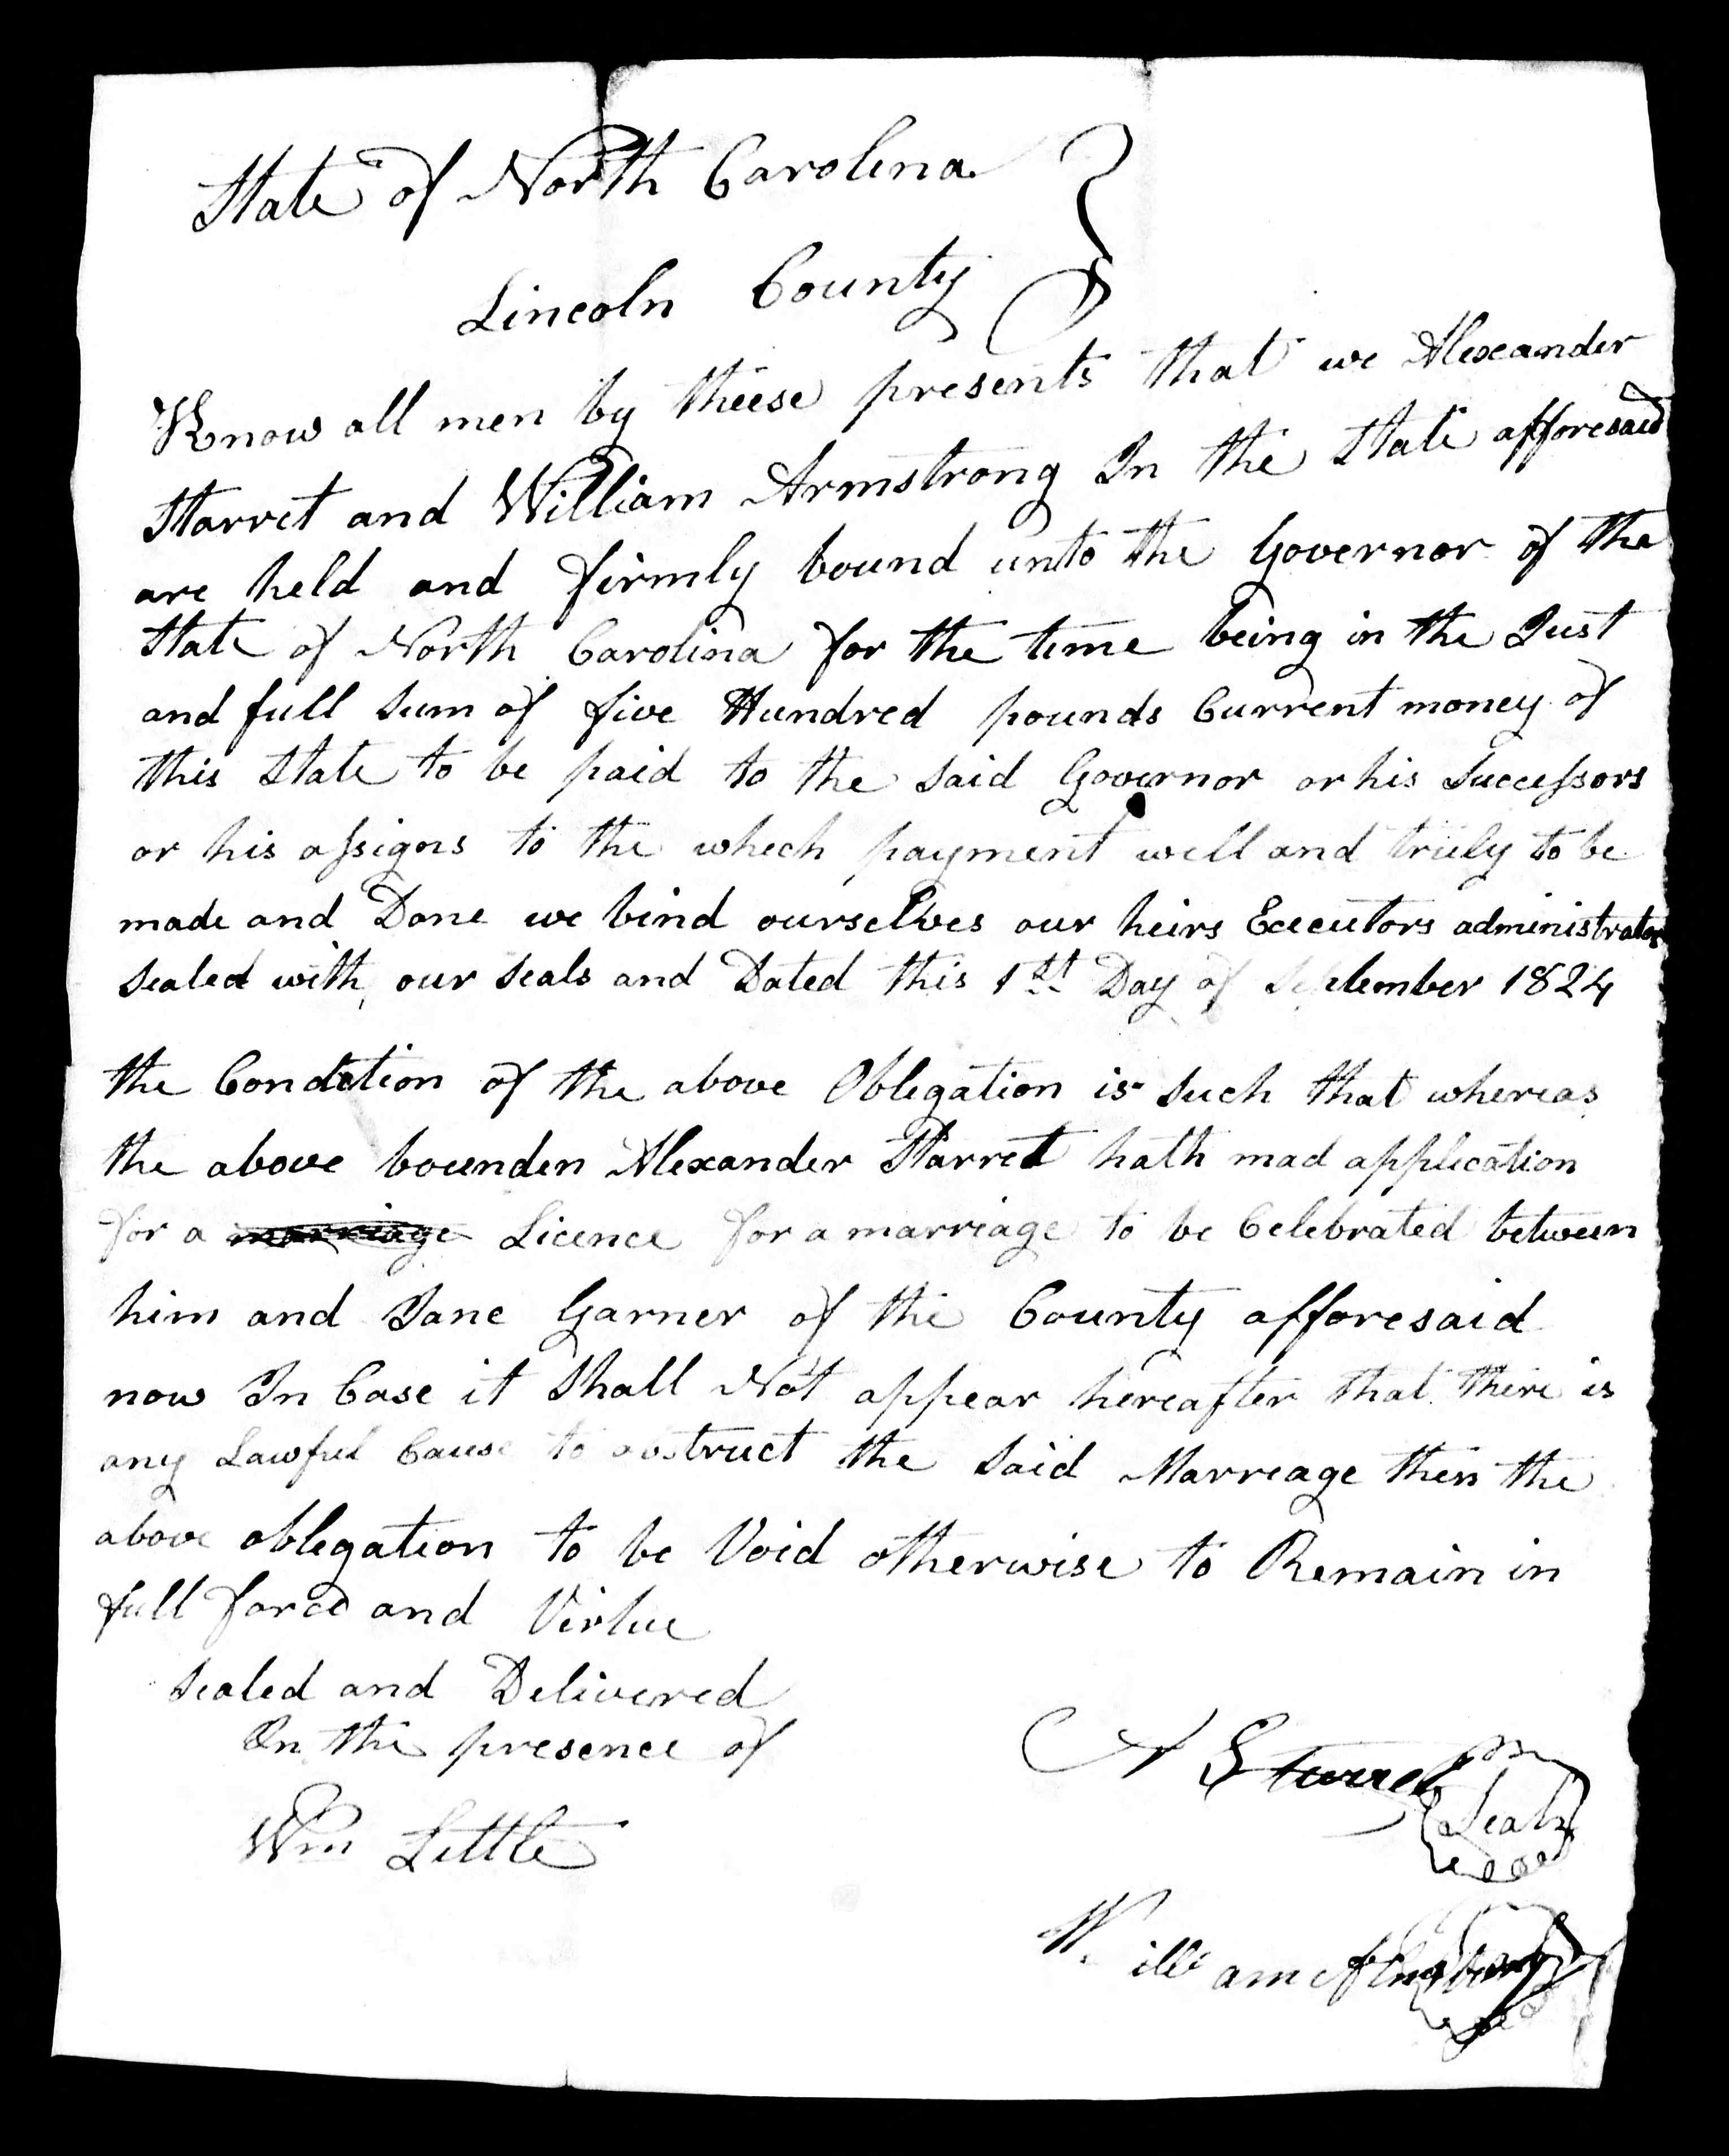 State of North Carolina
Lincoln County
Know all men by theese presents that we Alexander
Starret and William Armstrong In the State afforesaid
are held and firmly bound unto the Governor of the
State of North Carolina for the time being in the Just
and full sum of five Hundred pounds Current money of
this State to be paid to the said Governor or his Successors
or his assigns to the which payment well and truely to be
made and Done we bind ourselves our heirs Executors administrators
sealed with our seals and Dated this 1st Day of September 1824
the Condition of the above Obligation is such that whereas
the above bounden Alexander Starret hath mad application
for a marriage Licence for a marriage to be Celebrated between
him and Jane Garner of the County afforesaid
now In Case it Shall Not appear hereafter that there is
any Lawful Cause to obstruct the said Marriage then the
above obligation to be Void otherwise to Remain in
full force and Virtue
sealed and Delivered
In the presence of
Wm Little
A Starret
Seal
William Armstrong